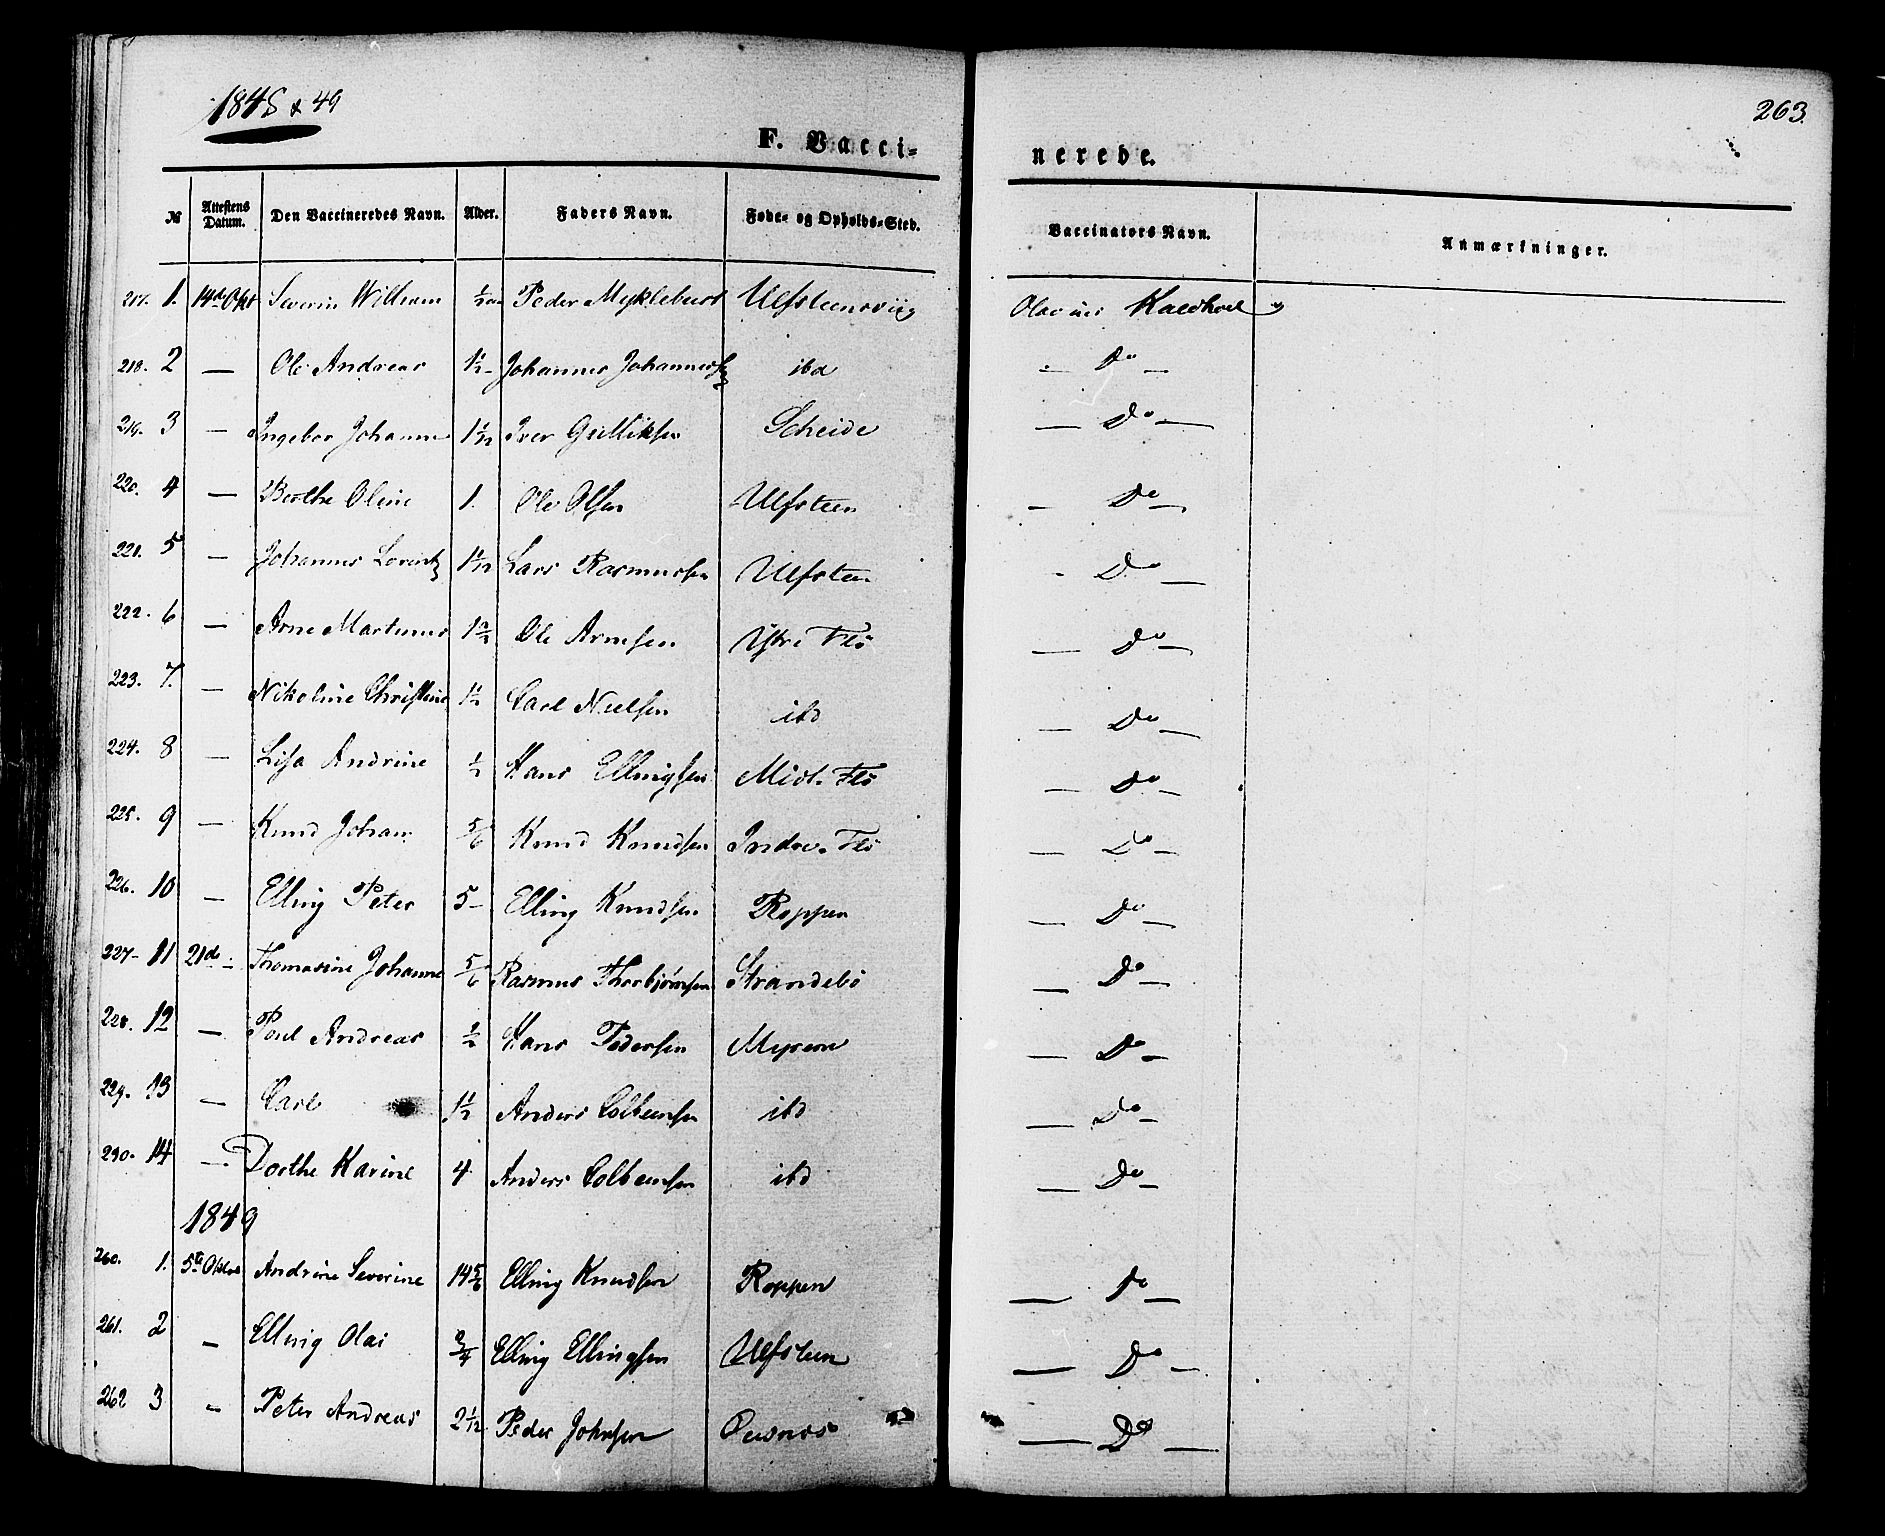 1848 & 49
263.
F. Vacci=
nerede.
№ Attestens Datum. Den Vaccineredes Navn. Alder. Faders Navn. Føde- og Opholds-Sted. Vaccinators Navn. Anmærkninger.
217. 1. 14d Okt Severin William Peder Myklebust Ulfsteensviig Kaldhoel
218. 2 — Ole Andreas 1½ Johannes Johannessen ibd — Do —
219. 3 — Johanne Iver Gulliksen Scheide — Do —
220. 4 — Berthe Oline 1. Ole Olsen Ulfsteen — Do —
221. 5 — Johannes Lorentz Lars Rasmussen Ulfsteen — Do —
222. 6 — Arne Martinus Ole Arnesen Ytre Flö — Do —
223. 7. — Nikoline Christine 1½ Carl Nielsen ibd — Do —
224. 8 — Lisa Andrine ½ Hans Ellingsen Midt. Flö — Do —
225. 9 — Knud Johan 5/6 Knud Knudsen Indre. Flö — Do —
226. 10 — Elling Peter 5 — Elling Knudsen Roppen — Do —
227 — 11 21d — Thomasine Johanne 5/6 Rasmus Thorbjørnsen Strandebö — Do —
228. 12 — Poul Andreas Hans Pedersen Myrene — Do —
229. 13 — Carl 1½ Anders Colbeensen ibd — Do —
230. 14 — Dorthe Karine 4 Anders Colbeensen ibd — Do —
1849
260. 1. 5te Oktob Andrine Severine 14 5/6 Elling Knudsen Roppen — Do —
261. 2 — Elling Olai ¾ Elling Ellingsen Ulfsteen — Do —
262 3 — Peter Andreas 2 1/12 Peder Johnsen — Do —